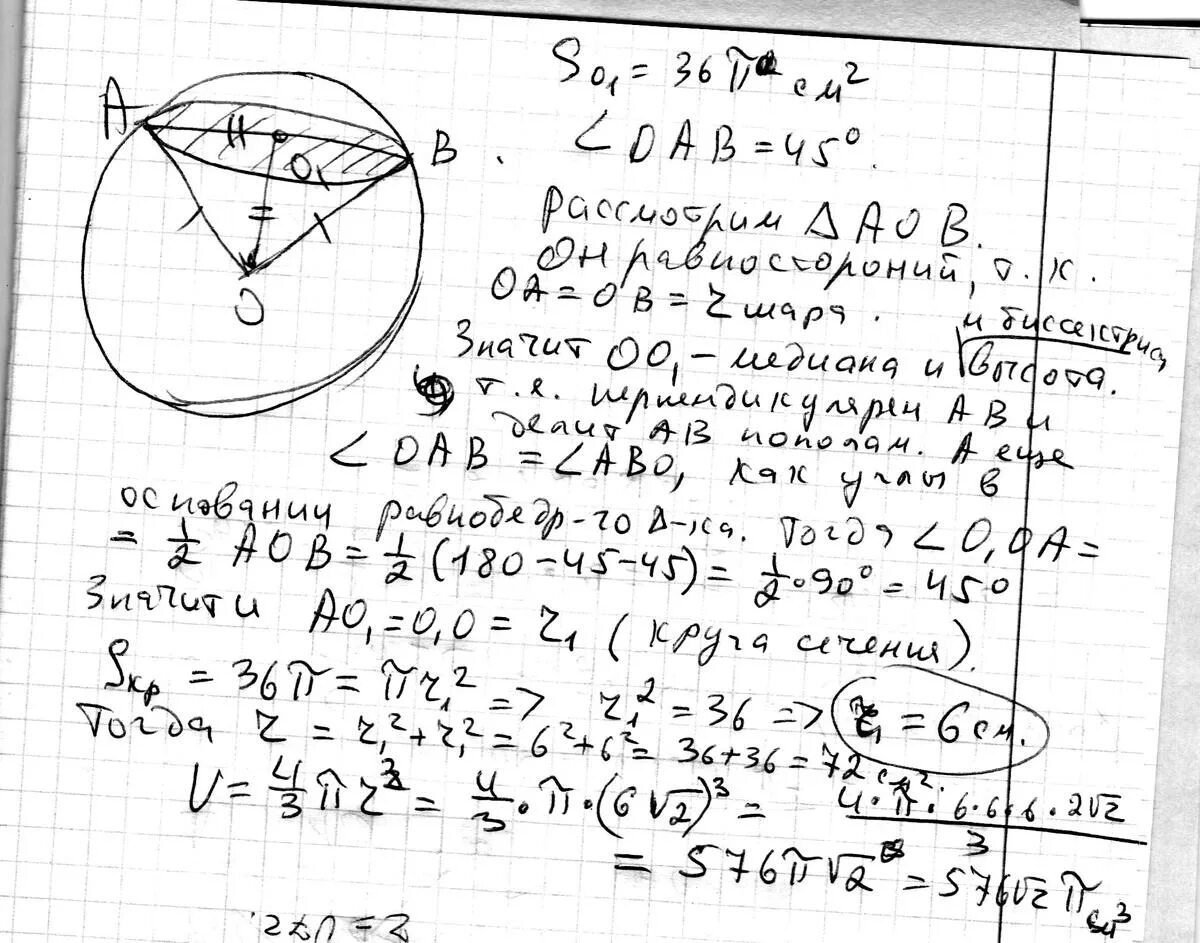 S_{O_1} = 36π см²
∠OAB = 45°.
A
H
B
O₁
O
Рассмотрим △AOB.
Он равностороний, т.к.
OA = OB = r шара.
и биссектриса
Значит OO₁ - медиана и высота.
т.е. перпендикулярен AB и
делит AB пополам. А еще
∠OAB = ∠ABO, как углы в
основании равнобедр-го △-ка. Тогда ∠O₁OA =
= 1/2 AOB = 1/2 (180 - 45 - 45) = 1/2 · 90° = 45°
Значит и AO₁ = O₁O = r₁ (круга сечения).
Sкр = 36π = πr₁² => r₁² = 36 => r₁ = 6 см.
Тогда r = r₁² + r₁² = 6² + 6² = 36 + 36 = 72 см².
V = 4/3 πr³ = 4/3 · π · (6√2)³ = 4·π·6·6·6·2√2 / 3
= 576π√2 = 576√2 π см³